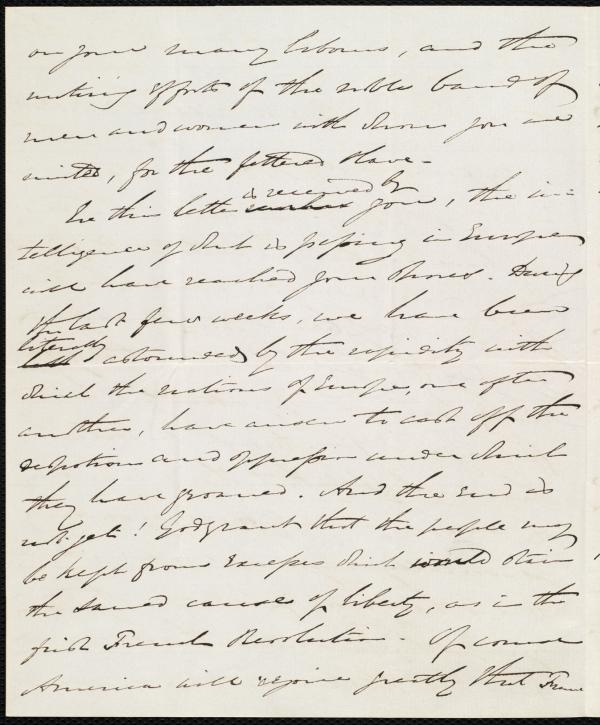 on your many labours, and the
untiring efforts of the noble band of
men and women with whom you are
united, for the fettered slave -
Ere this letter is received by you, the in=
telligence of what is passing in Europe
will have reached your shores. During
the last few weeks, we have been
literally astounded by the rapidity with
which the nations of Europe, one after
another, have arisen to cast off the
despotism and oppression under which
they have groaned. And the end is
not yet! God grant that the people may
be kept from excesses which would stain
the sacred cause of liberty, as in the
first French Revolution. Of course
America will rejoice greatly that France